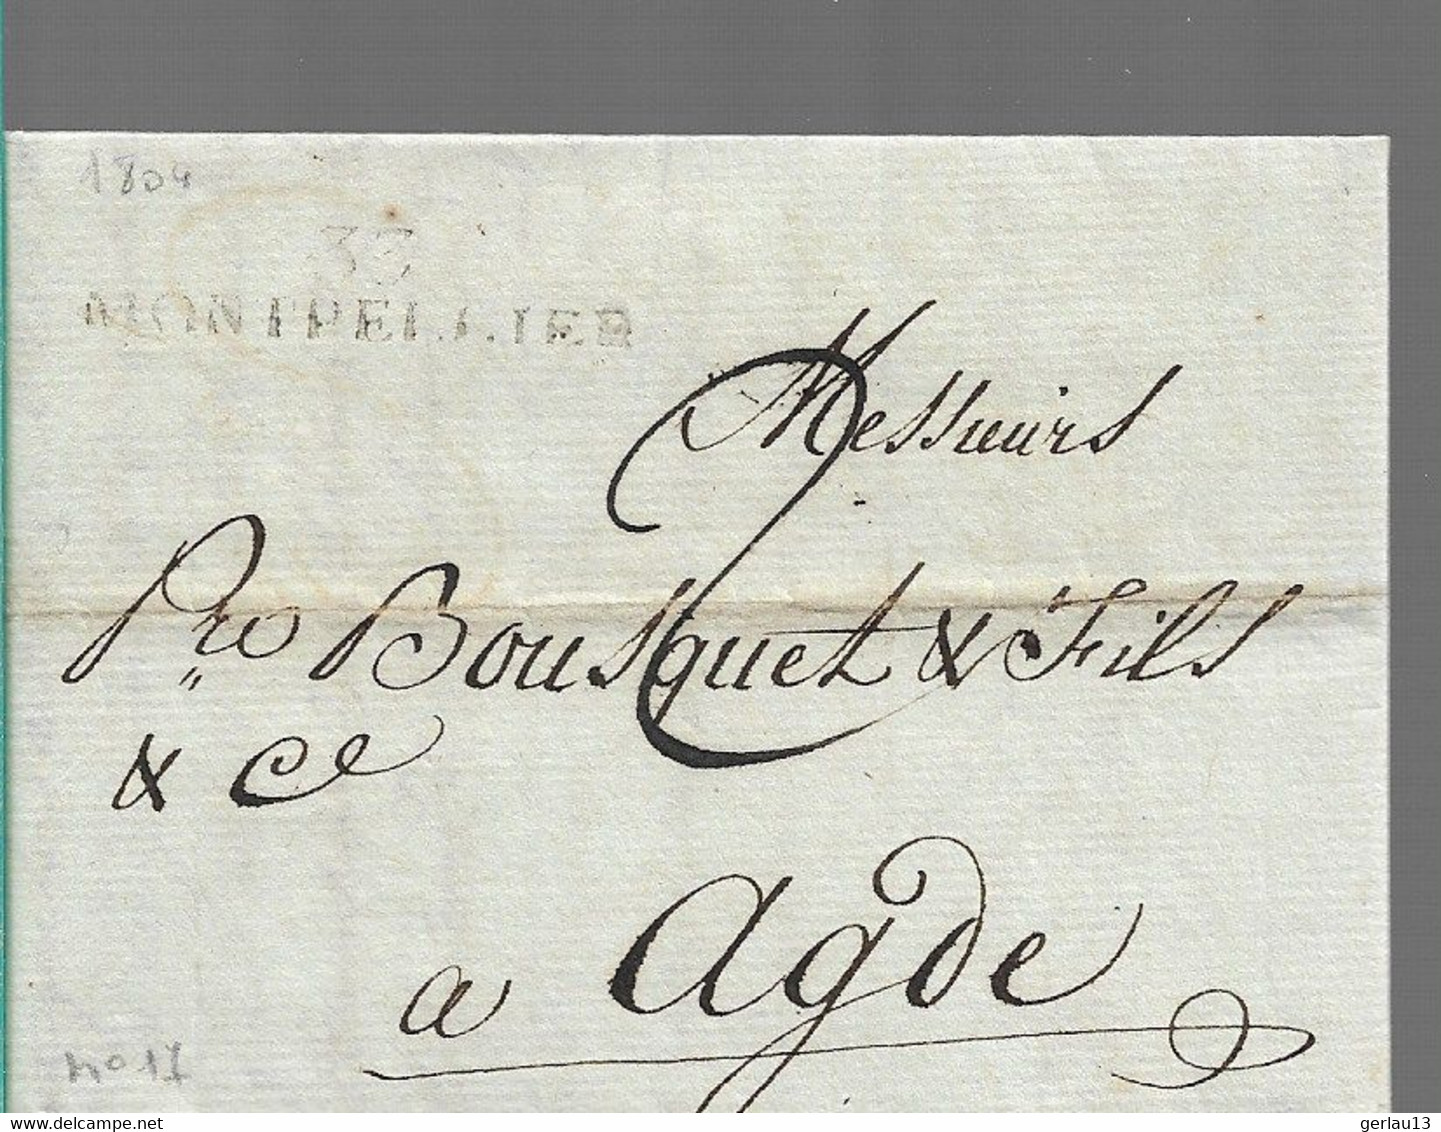 1804
33
MONTPELLIER
Messieurs
2
Pre Bousquet & Fils
& Ce
a Agde
no 17
www.delcampe.net
gerlau13